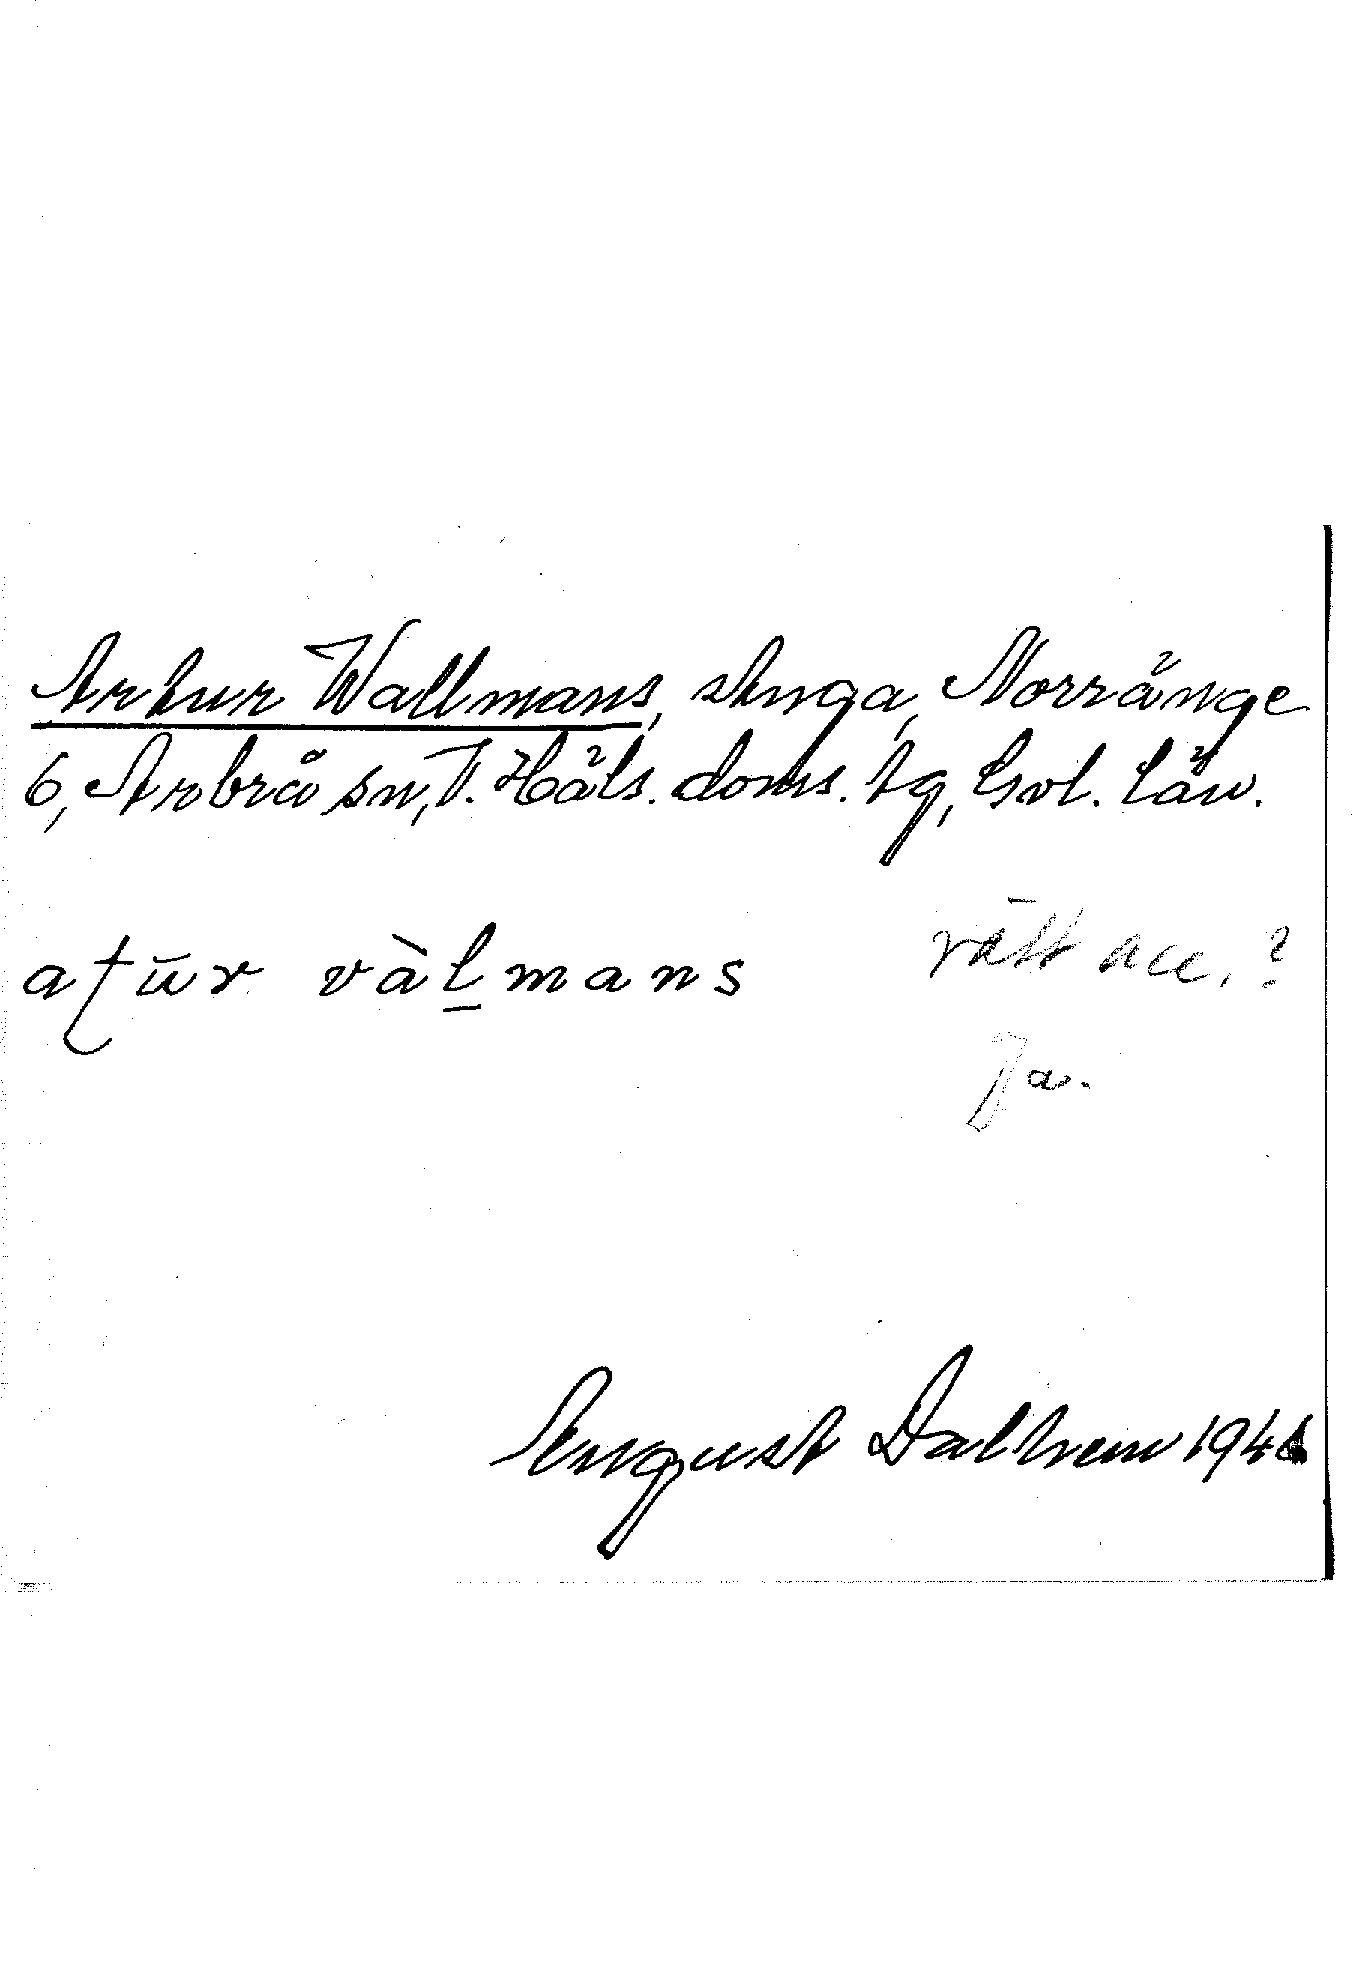 Artur Wallmans, stuga, Norränge
6, Arbrå sn, V. Häls. doms. tg, Gvl. län.
aʈūr vàl̲mans rätt acc.?
Ja.
August Dalhem 194